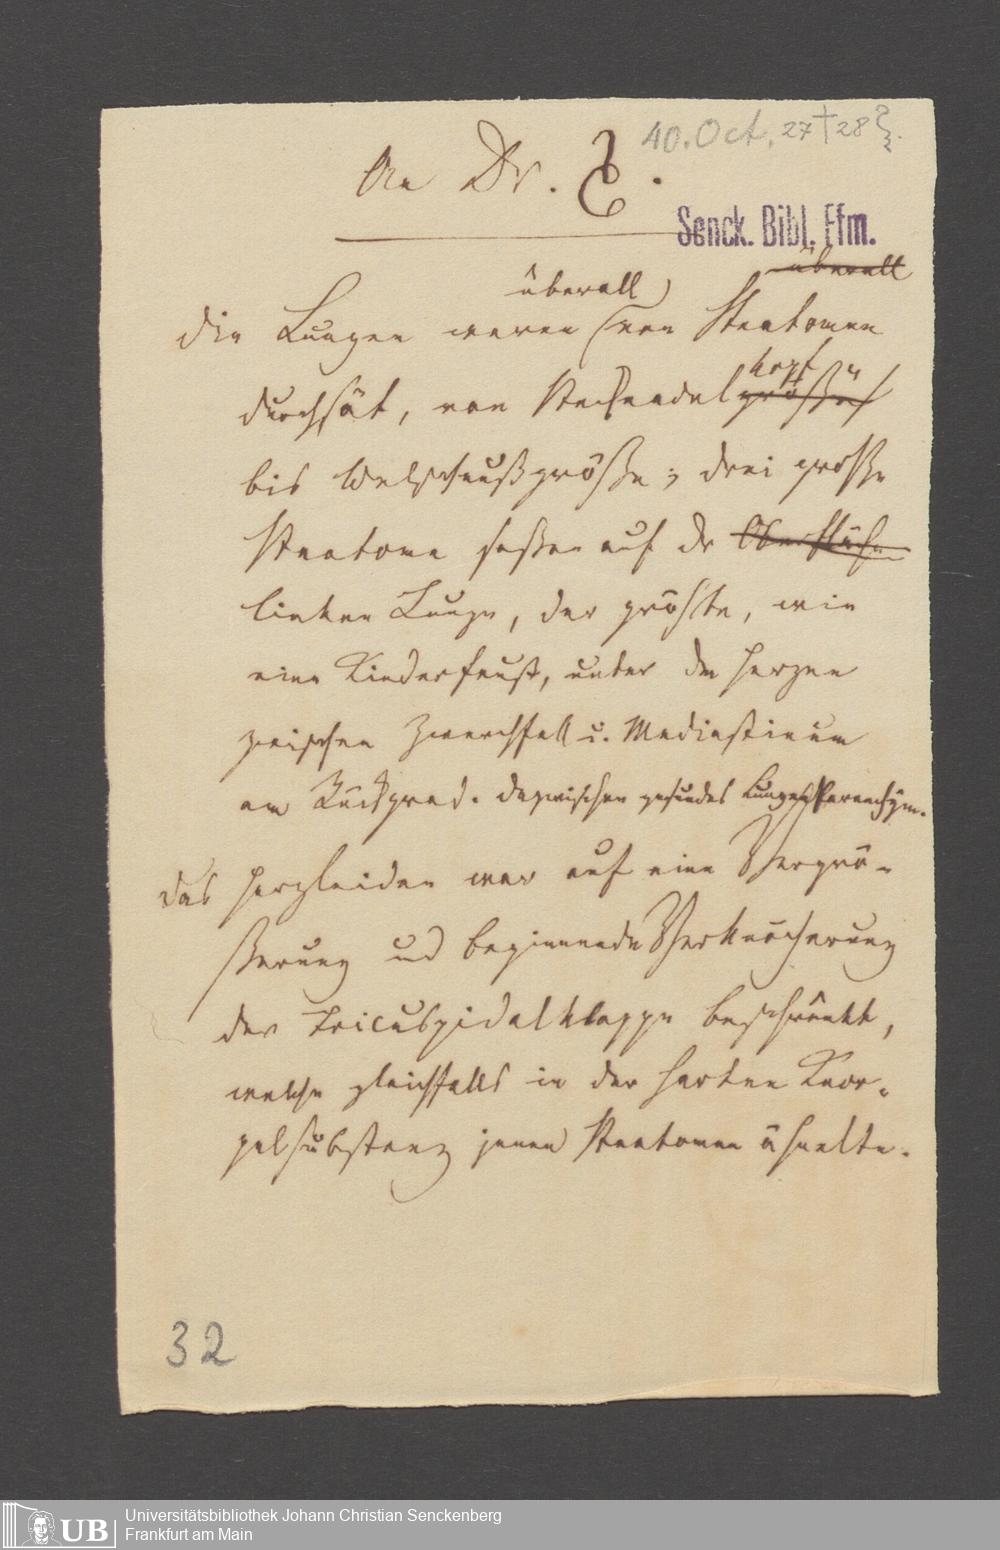 40. Oct. 27 † 28
An Dr. E.
Senck. Bibl. Ffm.
überall
überall
die Lungen waren von Steatomen
durchsät, von Stecknadelgröße
kopf
bis Welschnußgröße; drei große
Steatome saßen auf dr Oberfläche
linken Lunge, der größte, wie
eine Kinderfaust, unter dem Herzen
zwischen Zwerchfell u. Mediastinum
am Rückgrad. dazwischen gesundes Lungenparenchym.
das Herzleiden war auf eine Vergrö-
ßerung und beginnende Verknöcherung
der Tricuspidalklappe beschränkt,
welche gleichfalls in der harten Knor-
pelsubstanz jenen Steatomen ähnelte.
32
UB
Universitätsbibliothek Johann Christian Senckenberg
Frankfurt am Main